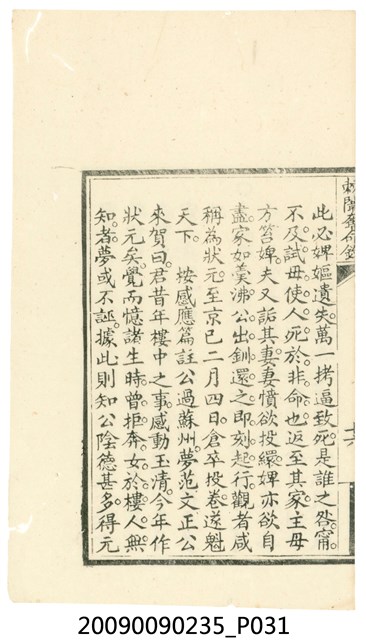 此必婢嫗遺失。萬一拷逼致死。是誰之咎。甯
不及試。毋使人死於非命也。返至其家。主母
方笞婢。夫又詬其妻。妻憤欲投繯。婢亦欲自
盡。家如羹沸。公出釧還之。即刻起行。觀者咸
稱為狀元。至京已二月四日。倉卒投卷。遂魁
天下。 按感應篇註。公過蘇州。夢范文正公
來賀曰。君昔年樓中之事。感動玉清。今年作
狀元矣。覺而憶諸生時。曾拒奔女於樓。人無
知者。夢或不誣。據此則知公陰德甚多。得元
20090090235_P031